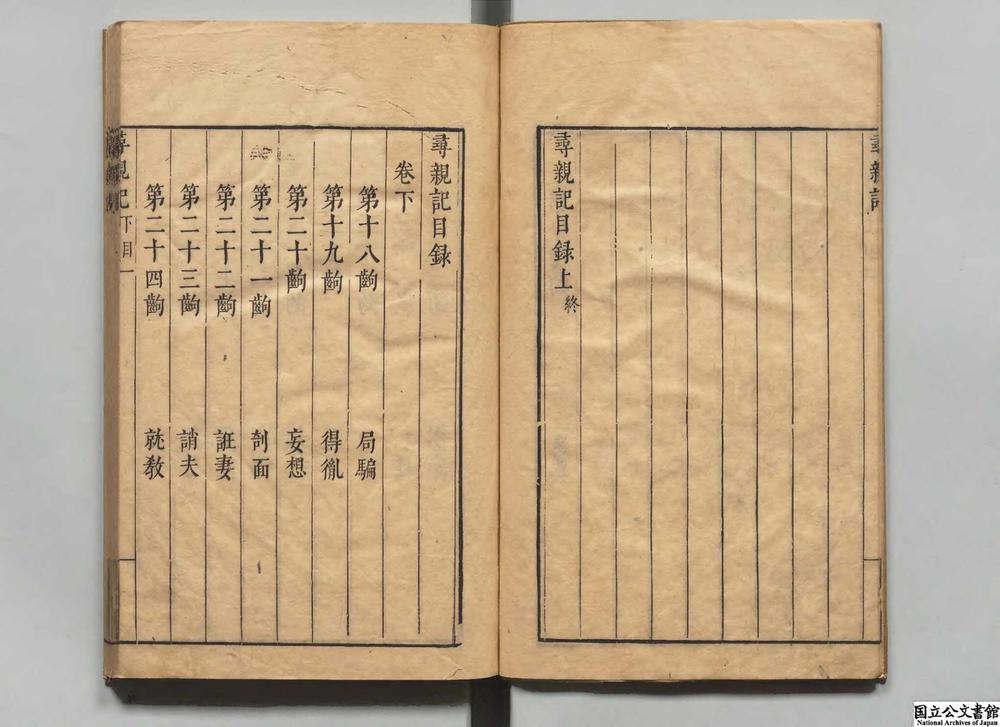 尋親記
尋親記目録上終
尋親記目録
卷下
第十八齣 局騙
第十九齣 得胤
第二十齣 妄想
第二十一齣 剖面
第二十二齣 誑妻
第二十三齣 誚夫
第二十四齣 就教
尋親記 下目 一
国立公文書館
National Archives of Japan